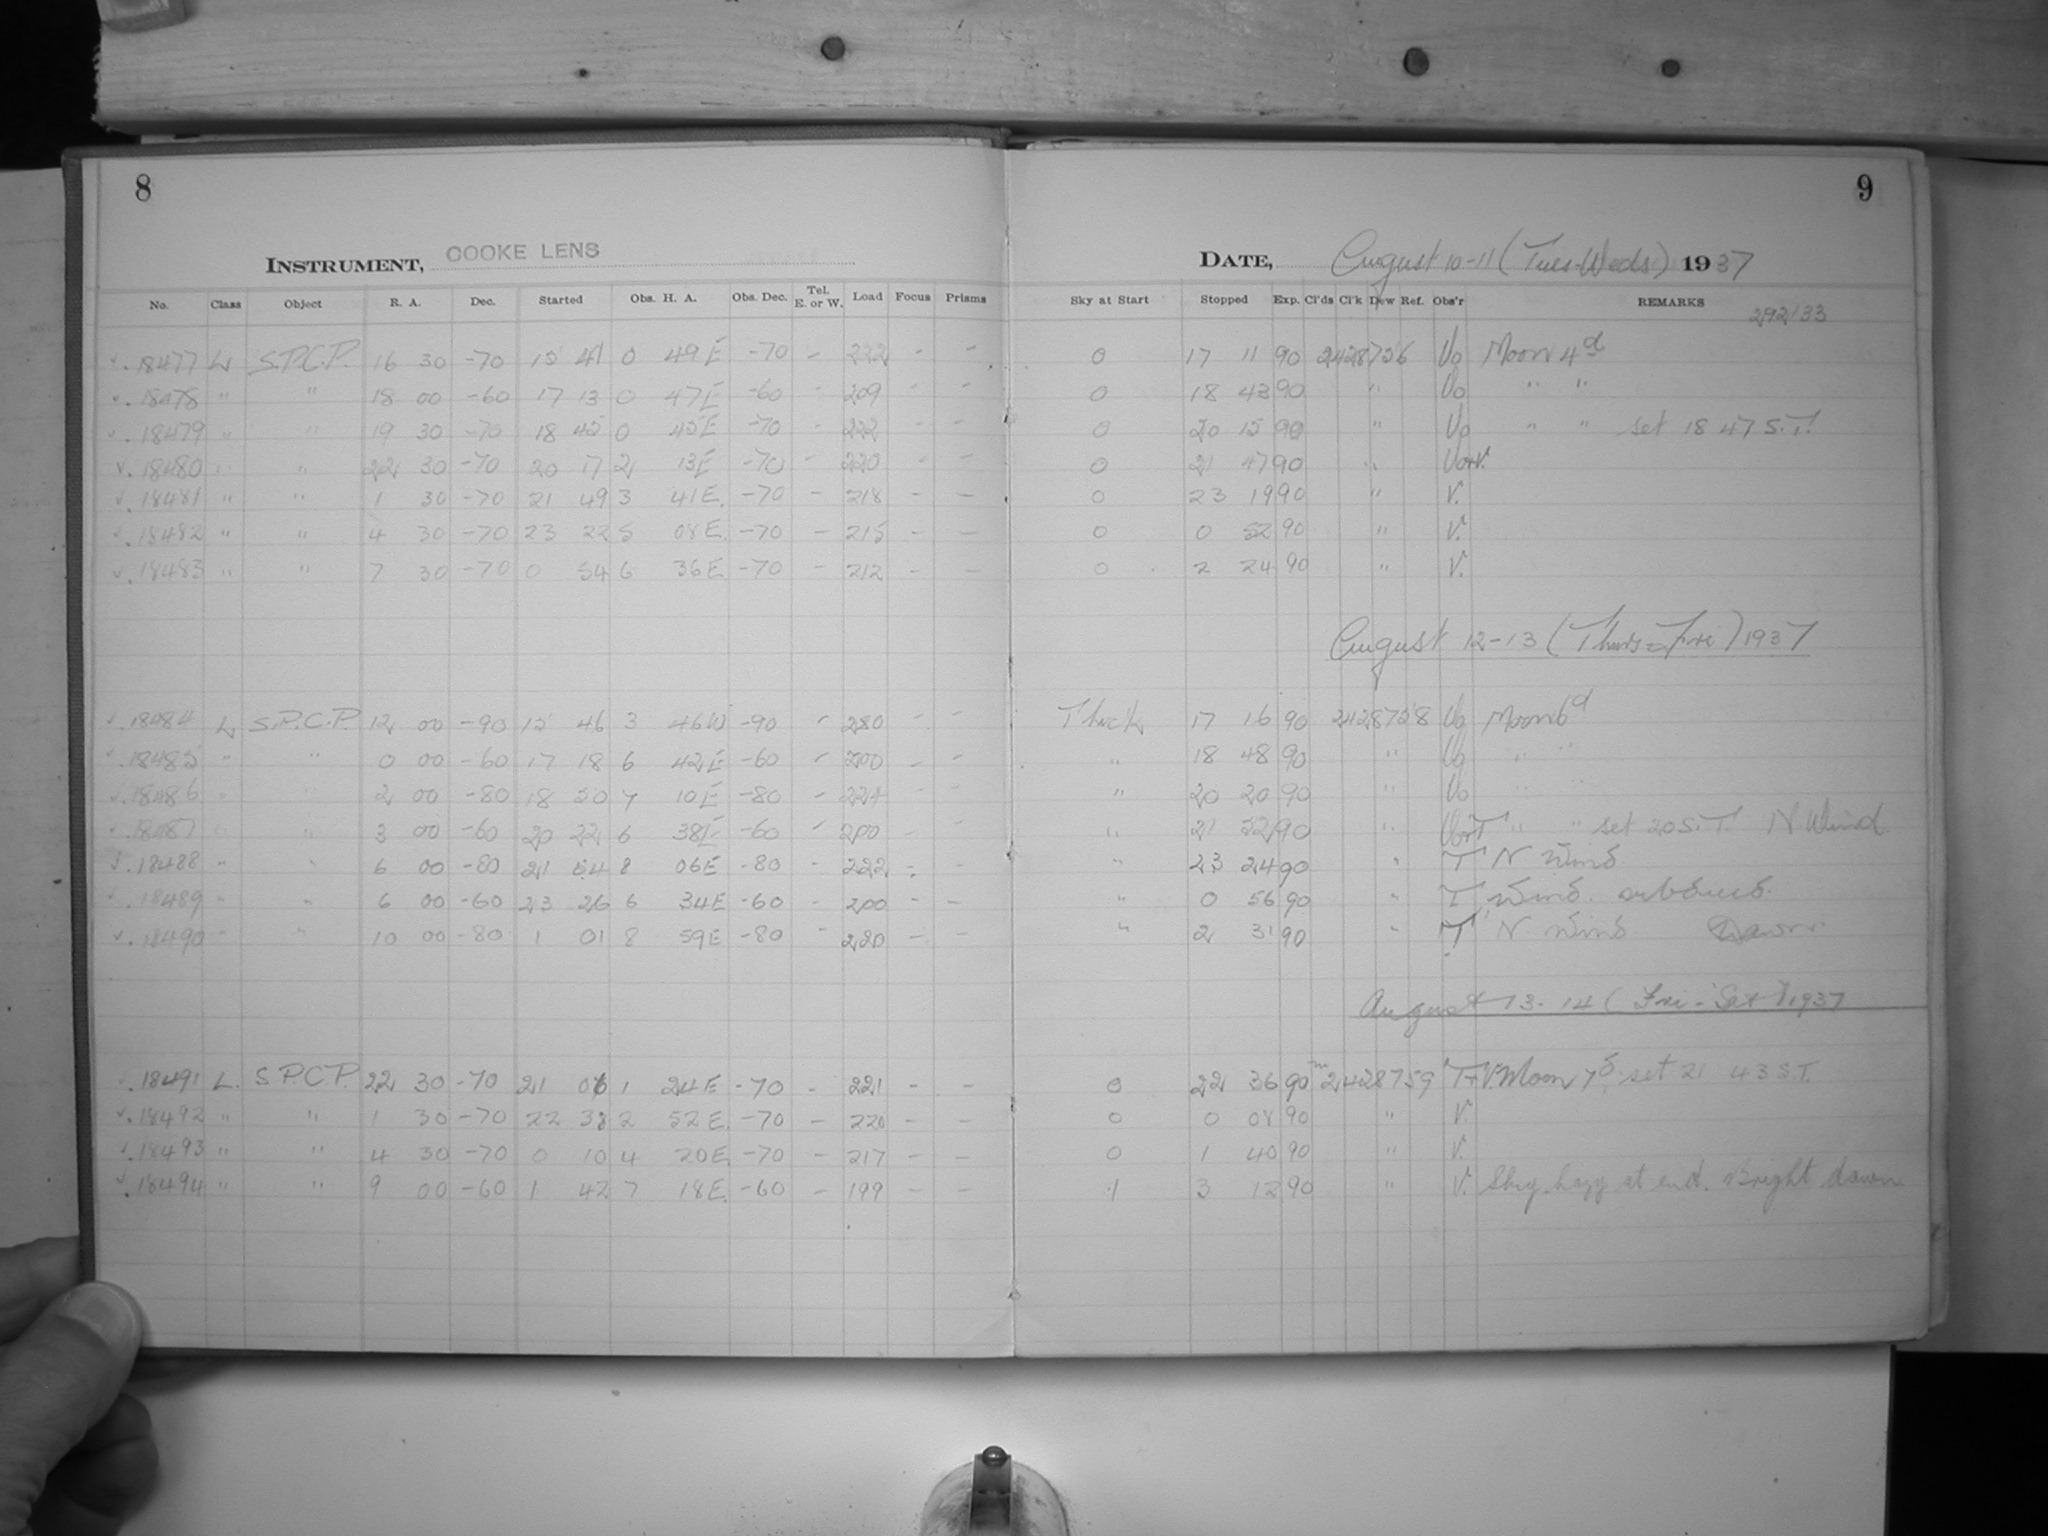 8
9
INSTRUMENT, COOKE LENS
DATE, August 10-11 (Tues-Weds) 1937
No. Class Object R. A. Dec. Started Obs. H. A. Obs. Dec. Tel. E. or W. Load Focus Prisms Sky at Start Stopped Exp. Cl'ds Cl'k Dew Ref. Obs'r REMARKS
18477 L S.P.C.P. 16 30 -70 15 41 0 49 E -70 - 222 - - 0 17 11 90 2428756 Uo Moon 4d
18478 " " 18 00 -60 17 13 0 47 E -60 - 209 - - 0 18 43 90 " Uo " "
18479 " " 19 30 -70 18 45 0 45 E -70 - 222 - - 0 20 15 90 " Uo " " set 18 47 S.T.
18480 " " 22 30 -70 20 17 2 13 E -70 - 220 - - 0 21 47 90 " Uo+V.
18481 " " 1 30 -70 21 49 3 41 E. -70 - 218 - - 0 23 19 90 " V.
18482 " " 4 30 -70 23 22 5 08 E. -70 - 215 - - 0 0 52 90 " V.
18483 " " 7 30 -70 0 54 6 36 E -70 - 212 - - 0 2 24 90 " V.
August 12-13 (Thurs-Fri) 1937
18484 L S.P.C.P. 12 00 -90 15 46 3 46 W -90 - 280 - - Thick 17 16 90 2428758 Uo Moon 6d
18485 " " 0 00 -60 17 18 6 42 E -60 - 200 - - " 18 48 90 " Uo " "
18486 " " 2 00 -80 18 50 7 10 E -80 - 224 - - " 20 20 90 " Uo "
18487 " " 3 00 -60 20 22 6 38 E -60 - 200 - - " 21 52 90 " Uo+T " " set 20 S.T. N Wind
18488 " " 6 00 -80 21 54 8 06 E -80 - 222 - " 23 24 90 " T N Wind
18489 " " 6 00 -60 23 26 6 34 E -60 - 200 - - " 0 56 90 " T Wind
18490 " " 10 00 -80 1 01 8 59 E -80 - 220 - - " 2 31 90 " T N Wind Dawn
August 13-14 (Fri-Sat) 1937
18491 L. S.P.C.P. 22 30 -70 21 06 1 24 E -70 - 221 - - 0 22 36 90m 2428759 T+V. Moon 7d. set 21 43 S.T.
18492 " " 1 30 -70 22 38 2 52 E. -70 - 220 - - 0 0 08 90 " V.
18493 " " 4 30 -70 0 10 4 20 E. -70 - 217 - - 0 1 40 90 " V.
18494 " " 9 00 -60 1 42 7 18 E. -60 - 199 - - 1 3 12 90 " V. Sky hazy at end. Bright dawn